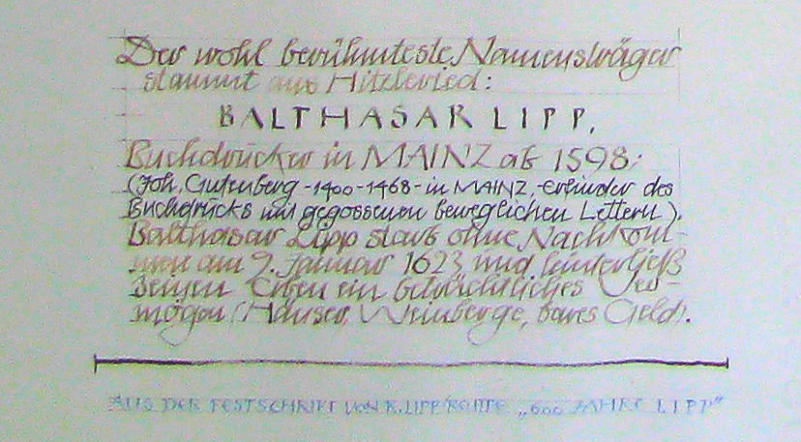 Der wohl berühmteste Namensträger
stammt aus Hitzleried:
BALTHASAR LIPP,
Buchdrucker in MAINZ ab 1598;
(Joh. Gutenberg -1400-1468- in MAINZ -Erfinder des
Buchdrucks mit gegossenen beweglichen Lettern).
Balthasar Lipp starb ohne Nachkom-
men am 9. Januar 1623 und hinterließ
seinen Erben ein beträchtliches Ver-
mögen (Häuser, Weinberge, bares Geld).
AUS DER FESTSCHRIFT VON R. LIPP "600 JAHRE LIPP"